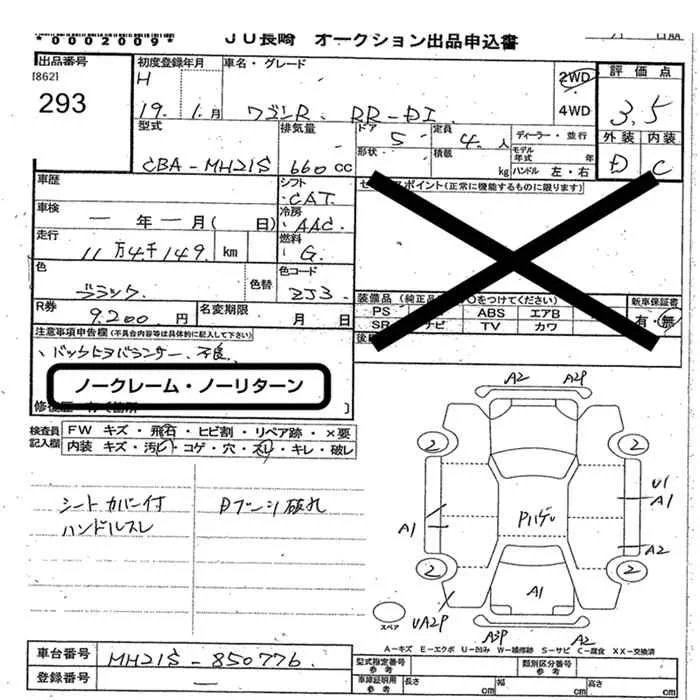 *0002009*
JU長崎 オークション出品申込書
出品番号
[862]
293
初度登録年月
H
19. 1. 月
車名・グレード
ワゴンR RR-DI
2WD
4WD
評価点
3.5
外装 内装
D C
型式
CBA-MH21S
排気量
660 cc
ドア 5
形状
定員 4 人
積載 kg
ディーラー・並行
モデル年式 年
ハンドル 左・右
車歴
シフト
CAT
車検
一 年 一 月( 日)
冷房
AAC
走行
11万4千149 km
燃料
G
色
ブラック
色替
色コード
ZJ3
R券
9200 円
名変期限
月 日
ポイント(正常に機能するものに限ります)
装備品
をつけてください)
新車保証書
PS
ABS
エアB
有・無
SR
ナビ
TV
カワ
注意事項申告欄(不具合内容等は具体的に記入して下さい)
ノークレーム・ノーリターン
検査員記入欄
FW キズ・飛石・ヒビ割・リペア跡・×要
内装 キズ・汚レ・コゲ・穴・スレ・キレ・破レ
シートカバー付
ハンドルスレ
破れ
A2 A2P
2 2
U1
A1
A1
A2
2 2
A1
スペア
UA2P
A3P A2
A-キズ E-エクボ U-凹み W-補修跡 S-サビ C-腐食 XX-交換済
車台番号
MH21S-850776
登録番号
一
型式指定番号
参考
類別区分番号
参考
車庫証明用
参考
長さ cm
幅 cm
高さ cm